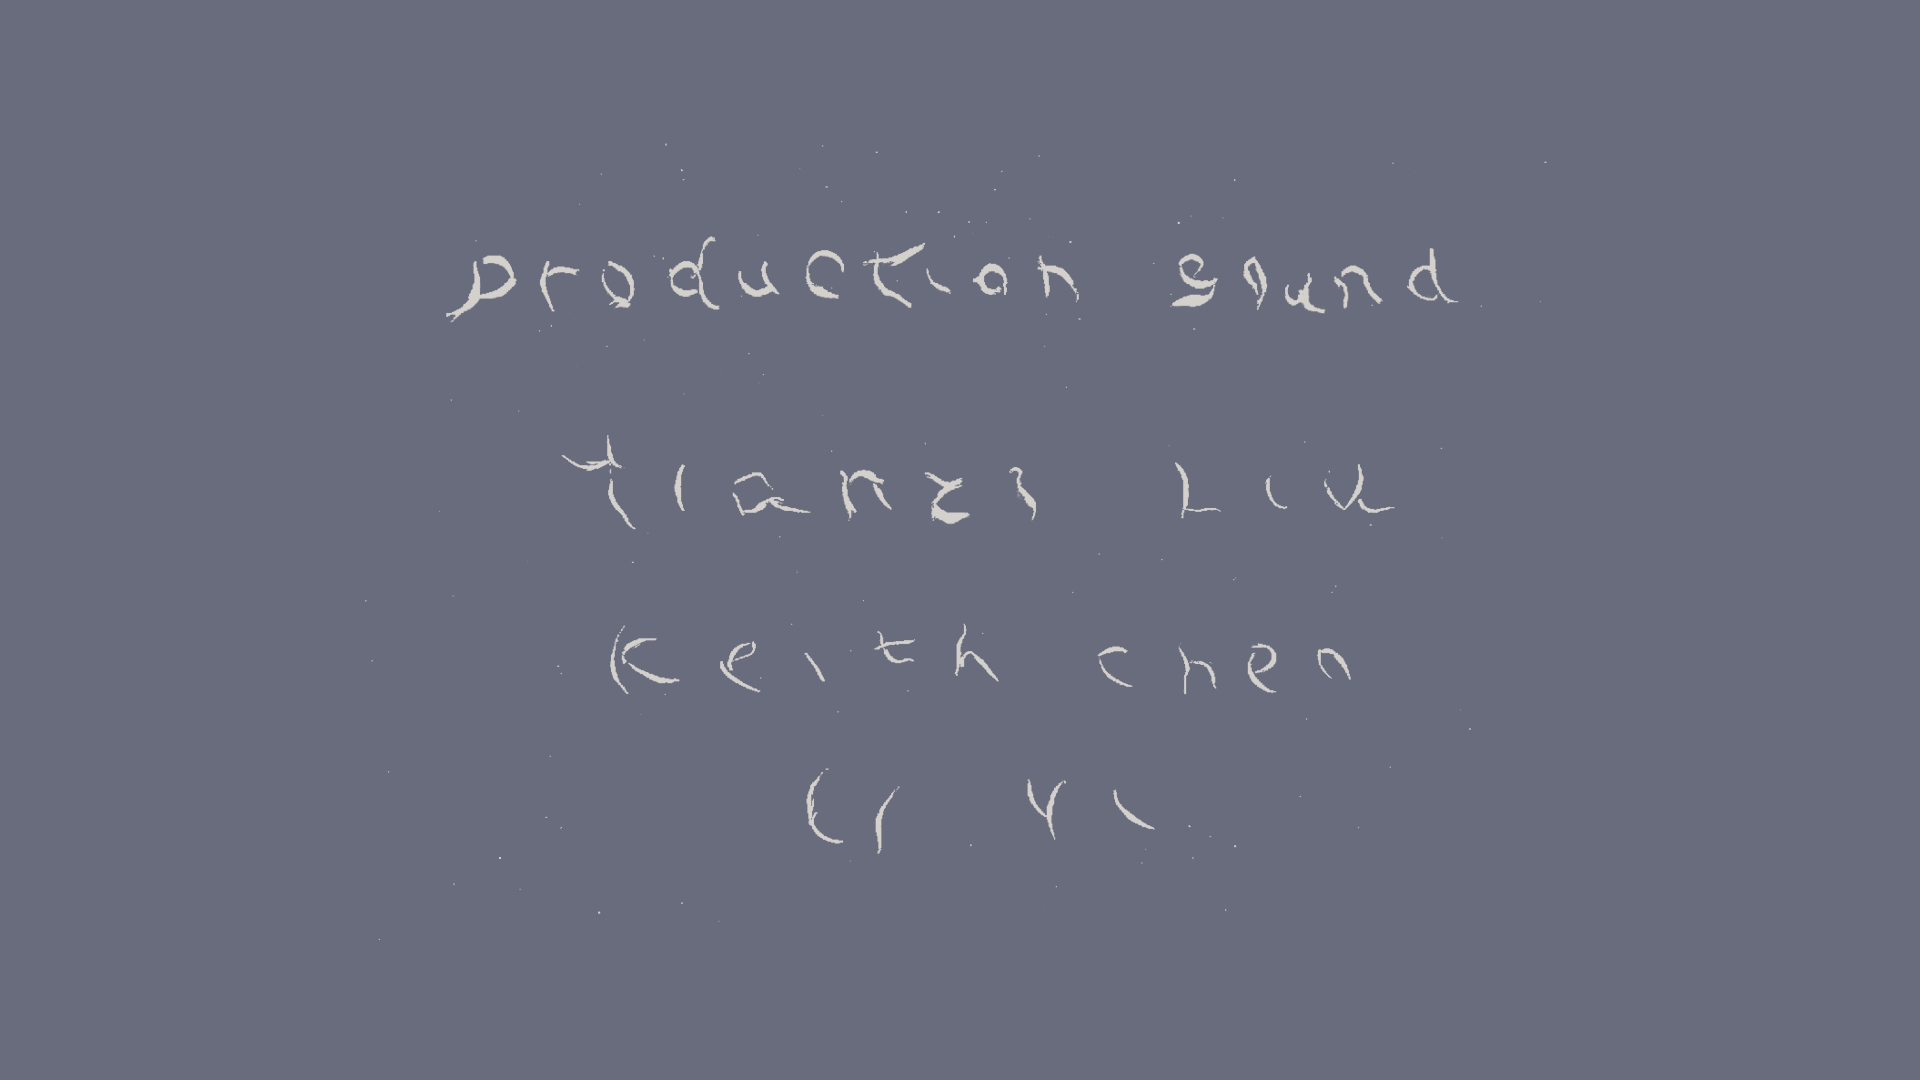 production sound
tianzi Liu
Keith chen
Li Yi